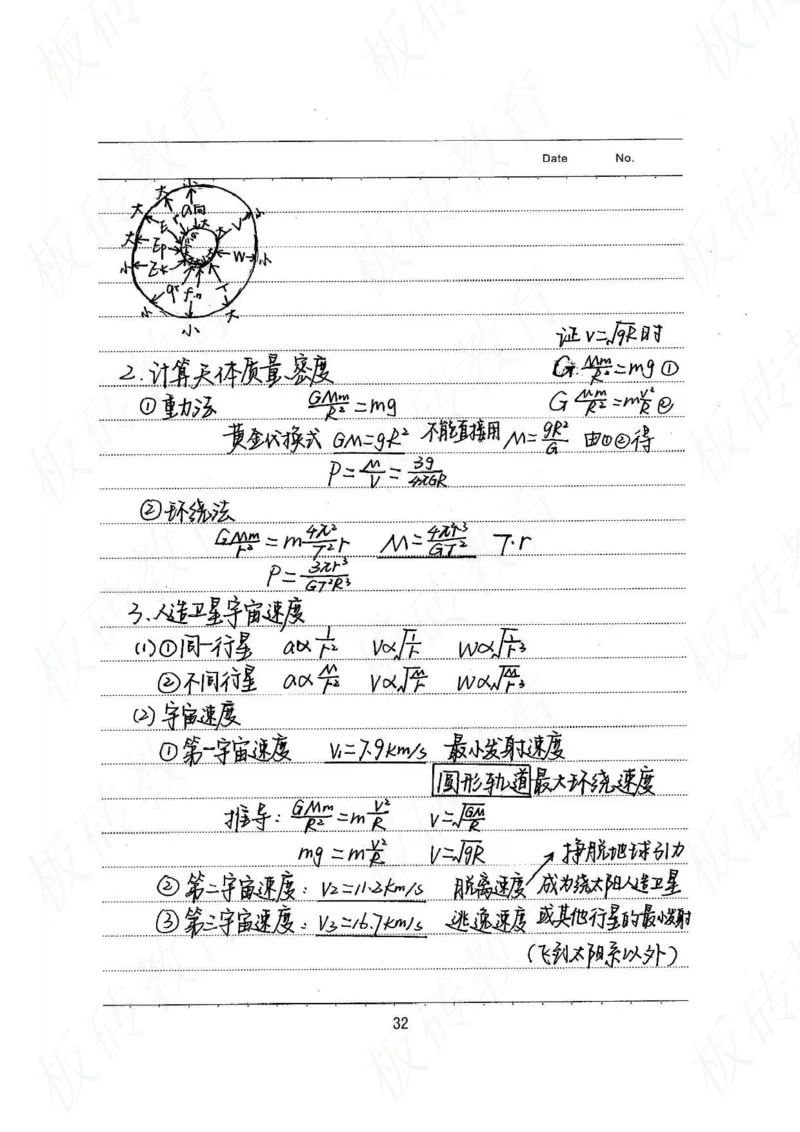 Date No.
小
大 大 a向 小
大 E r 大 V
大 Ep W 小
小 Ek
g F万 T
小 小 大
证 v=√gR 时
2.计算天体质量、密度 G·Mm/R²=mg ①
①重力法 GMm/R²=mg G Mm/R²=mv²/R ②
黄金代换式 GM=gR² 不能直接用 M=gR²/G 由①②得
ρ=M/V=3g/4πGR
②环绕法
GMm/r²=m4π²/T²r M=4π²r³/GT² T·r
ρ=3πr³/GT²R³
3.人造卫星宇宙速度
(1)①同一行星 a∝1/r² V∝√1/r W∝√1/r³
②不同行星 a∝M/r² V∝√M/r W∝√M/r³
(2)宇宙速度
①第一宇宙速度 V₁=7.9km/s 最小发射速度
圆形轨道最大环绕速度
推导:GMm/R²=mV²/R V=√GM/R
mg=mV²/R V=√gR 挣脱地球引力
②第二宇宙速度:V2=11.2km/s 脱离速度 成为绕太阳人造卫星
③第三宇宙速度:V3=16.7km/s 逃逸速度 或其他行星的最小发射
(飞到太阳系以外)
32
板砖教育